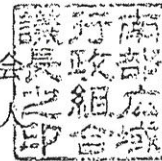 南部広域
行政組合
議長之印
会人